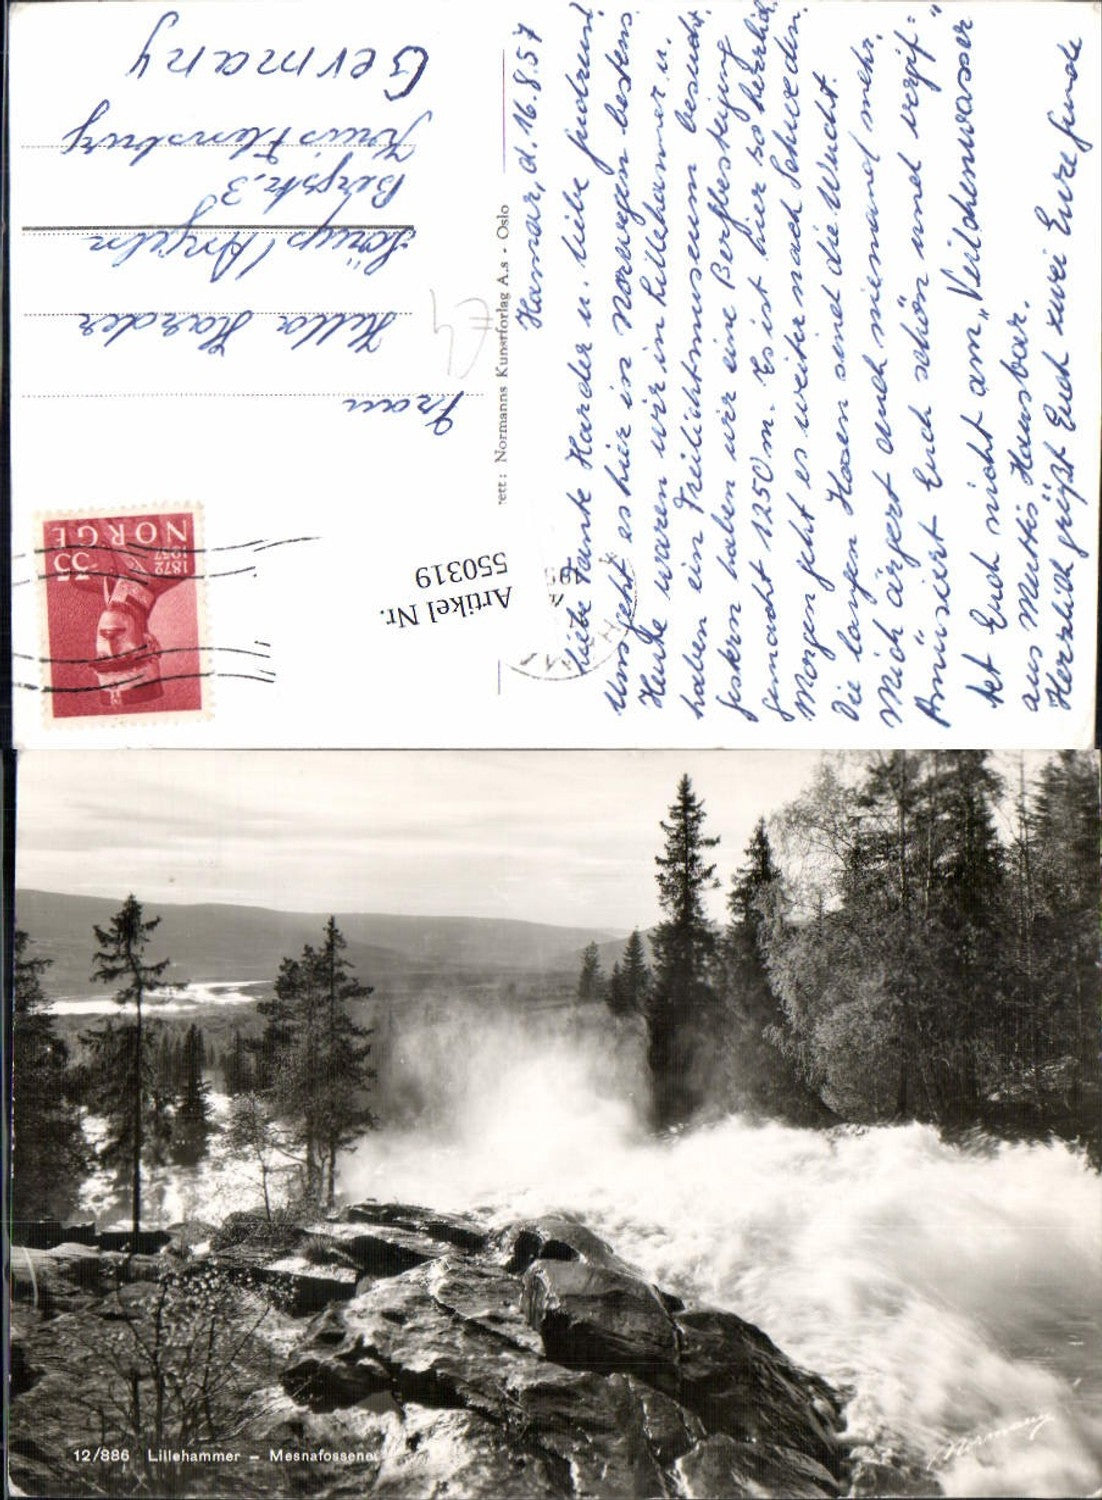 Hamar, d. 16.8.57
Liebe Tante Harder u. liebe Gudrun!
Uns geht es hier in Norwegen bestens.
Heute waren wir in Lillehammer u.
haben ein Freilichtmuseum besucht.
Gestern haben wir eine Bergbesteigung
gemacht 1250 m. Es ist hier so herrlich.
Morgen geht es weiter nach Schweden.
Die langen Hosen sind die Wucht.
Mich ärgert auch niemand mehr.
Amüsiert Euch schön und vergif=
tet Euch nicht am „Veilchenwasser“
aus Muttis Hausbar.
Herzlich grüßt Euch zwei Eure Gunde
ett: Normanns Kunstforlag A.s - Oslo
Artikel Nr.
550319
NORGE
35
1872
1957
Frau
Harder
Sörup/Angeln
Bergstr. 3
Kreis Flensburg
Germany
12/886 Lillehammer - Mesnafossene
Normann